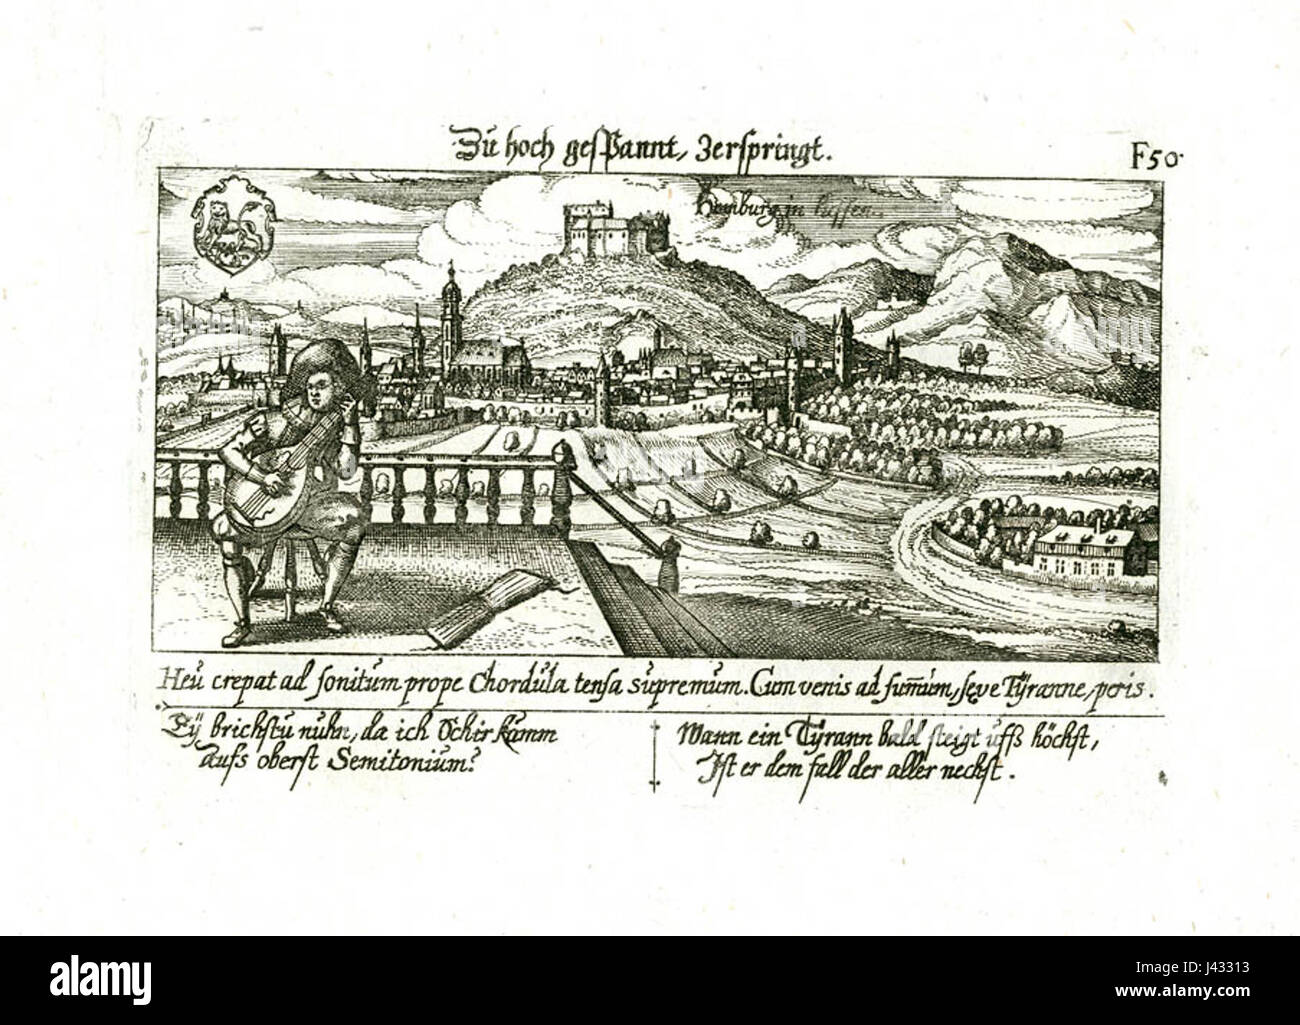 Zu hoch gespannt, Zerspringt.
F50.
Homburg in Hessen.
Heu crepat ad sonitum prope Chordula tensa supremum. Cum venis ad sum̄um, sęve Tÿranne, peris.
Eÿ brichstu nuhn, da ich Dich kamm
aufs oberst Semitonium?
Wann ein Tÿrann bald steigt uffs höchst,
Ist er dem fall der aller nechst.
alamy
a
alamy
a
alamy stock photo
J43313
www.alamy.com